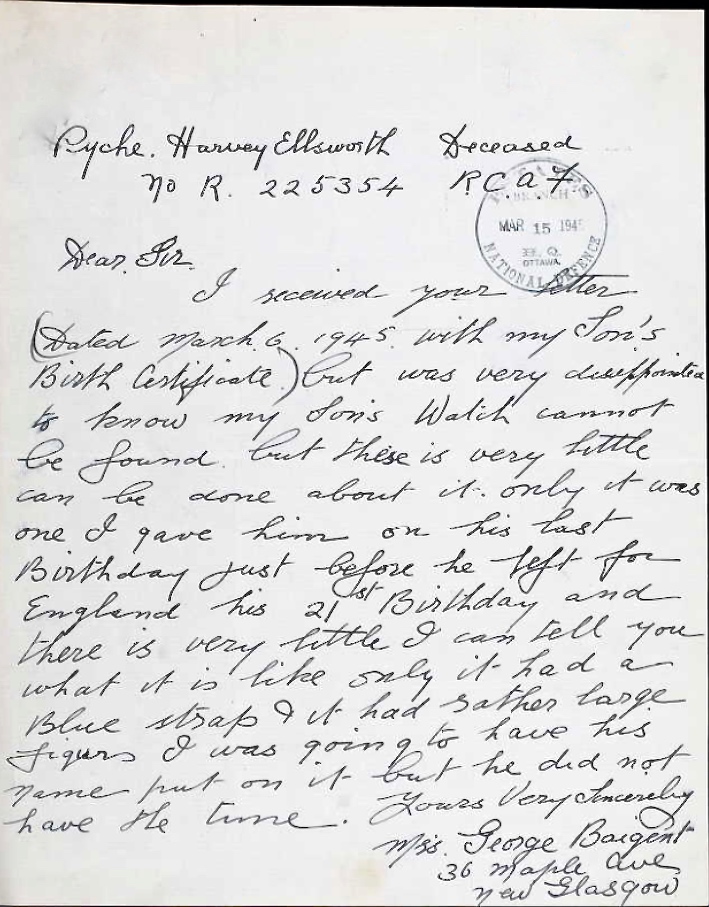 Pyche. Harvey Ellsworth Deceased
No R. 225354 R C a F
ESTATES
BRANCH
MAR 15 1945
H. Q.
OTTAWA
NATIONAL DEFENCE
Dear Sir.
I received your letter
(Dated March 6. 1945. with my Son's
Birth Certificate) but was very disappointed
to know my Son's Watch cannot
be found. but there is very little
can be done about it. only it was
one I gave him on his last
Birthday just before he left for
England his 21st Birthday and
there is very little I can tell you
what it is like only it had a
Blue strap & it had rather large
figurs I was going to have his
name put on it but he did not
have the time. Yours Very Sincereley
Mrs. George Baigent
36 Maple Ave
New Glasgow